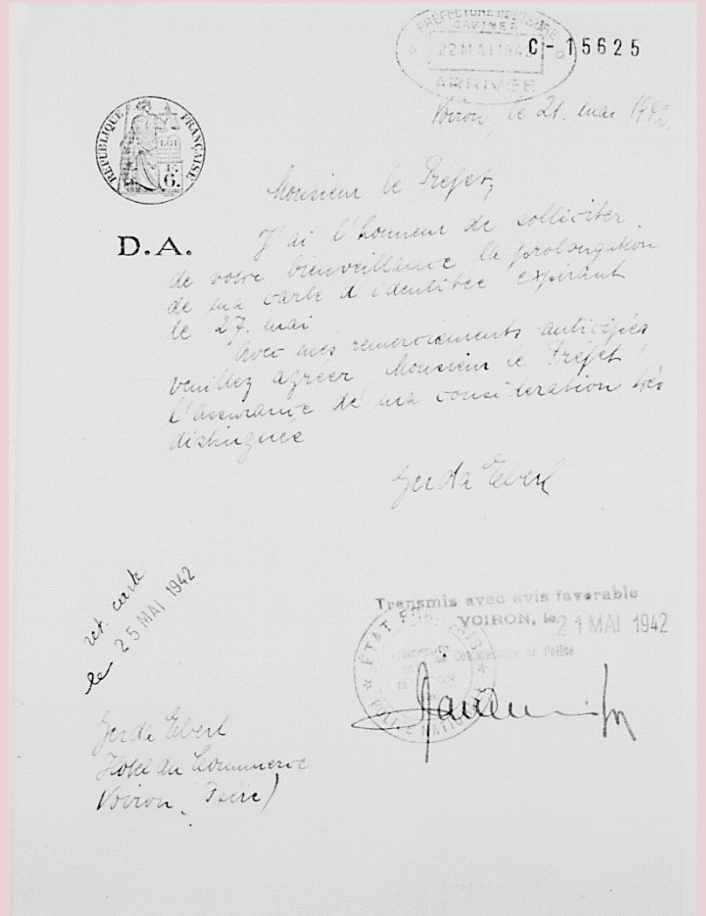 PRÉFECTURE DE L'ISÈRE
CABINET
22 MAI 1942
ARRIVÉE
C-15625
Voiron, le 21. mai 1942.
RÉPUBLIQUE FRANÇAISE
LOI
6.
D.A.
Monsieur le Préfet,
J'ai l'honneur de solliciter
de votre bienveillance la prolongation
de ma carte d'identitée expirant
le 27. mai
Avec mes remerciements anticipées
veuillez agréer Monsieur le Préfet
l'assurance de ma consideration très
distinguée
Gerda Eberl
ret. carte
le 25 MAI 1942
Transmis avec avis favorable
VOIRON, le 21 MAI 1942
Le Commissaire de Police
ÉTAT FRANÇAIS
POLICE NATIONALE
Gerda Eberl
Hotel du Commerce
Voiron, Isère)